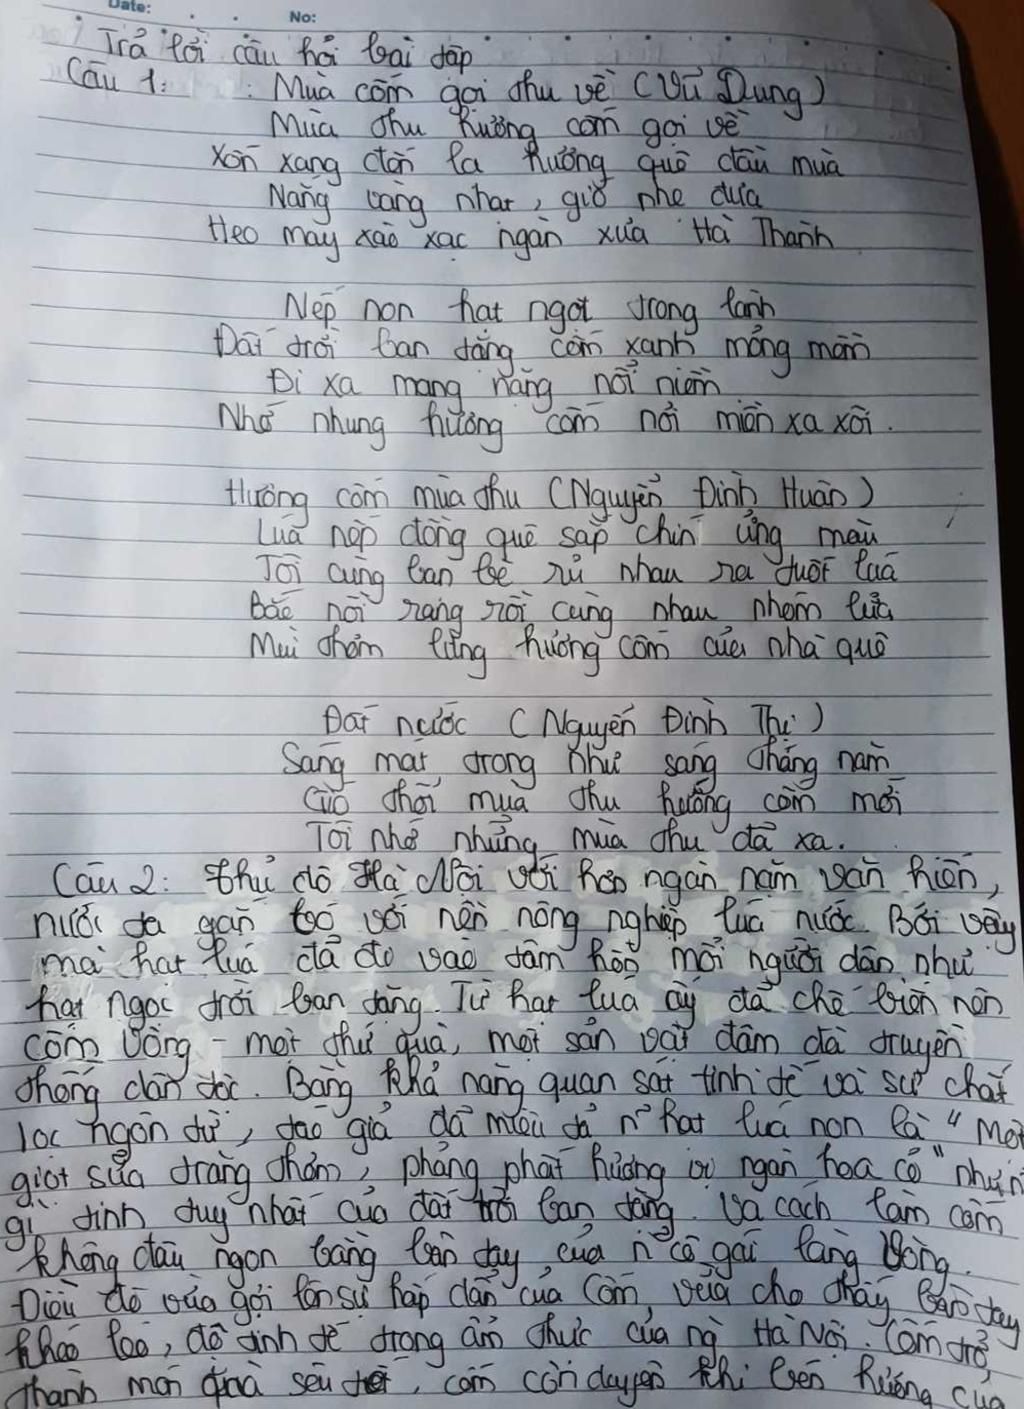 Date: No:
Trả lời câu hỏi bài tập
Câu 1: Mùa cốm gọi thu về (Vũ Dung)
Mùa thu hương cốm gọi về
Xốn xang đón lá hương quê đầu mùa
Nắng vàng nhạt, gió nhẹ đưa
Heo may xào xạc ngàn xưa Hà Thành
Nếp non hạt ngọt trong lành
Đất trời ban tặng cốm xanh mỏng mềm
Đi xa mang nặng nỗi niềm
Nhớ nhung hương cốm nơi miền xa xôi.
Hương cốm mùa thu (Nguyễn Đình Huân)
Lúa nếp đồng quê sắp chín ửng màu
Tôi cùng bạn bè rủ nhau ra tuốt lúa
Bắc nồi rang rồi cùng nhau nhóm lửa
Mùi thơm lừng hương cốm của nhà quê
Đất nước (Nguyễn Đình Thi)
Sáng mát trong như sáng tháng năm
Gió thổi mùa thu hương cốm mới
Tôi nhớ những mùa thu đã xa.
Câu 2: Thủ đô Hà Nội với hơn ngàn năm văn hiến,
nước ta gắn bó với nền nông nghiệp lúa nước. Bởi vậy
mà hạt lúa đã đi vào tâm hồn mỗi người dân như
hạt ngọc trời ban tặng. Từ hạt lúa ấy đã chế biến nên
cốm Vòng - một thứ quà, một sản vật đậm đà truyền
thống dân tộc. Bằng khả năng quan sát tinh tế và sự chắt
lọc ngôn từ, tác giả đã miêu tả n~ hạt lúa non là "Một
giọt sữa trắng thơm, phảng phất hương vị ngàn hoa cỏ" như
gì tinh tuý nhất của đất trời ban tặng. Và cách làm cốm
không đâu ngon bằng bàn tay của n~ cô gái làng Vòng.
Điều đó vừa gợi lên sự hấp dẫn của Cốm, vừa cho thấy bàn tay
khéo léo, độ tinh tế trong ẩm thực của ng` Hà Nội. Cốm trở
thành món quà sêu tết, cốm còn duyên khi bén hương của